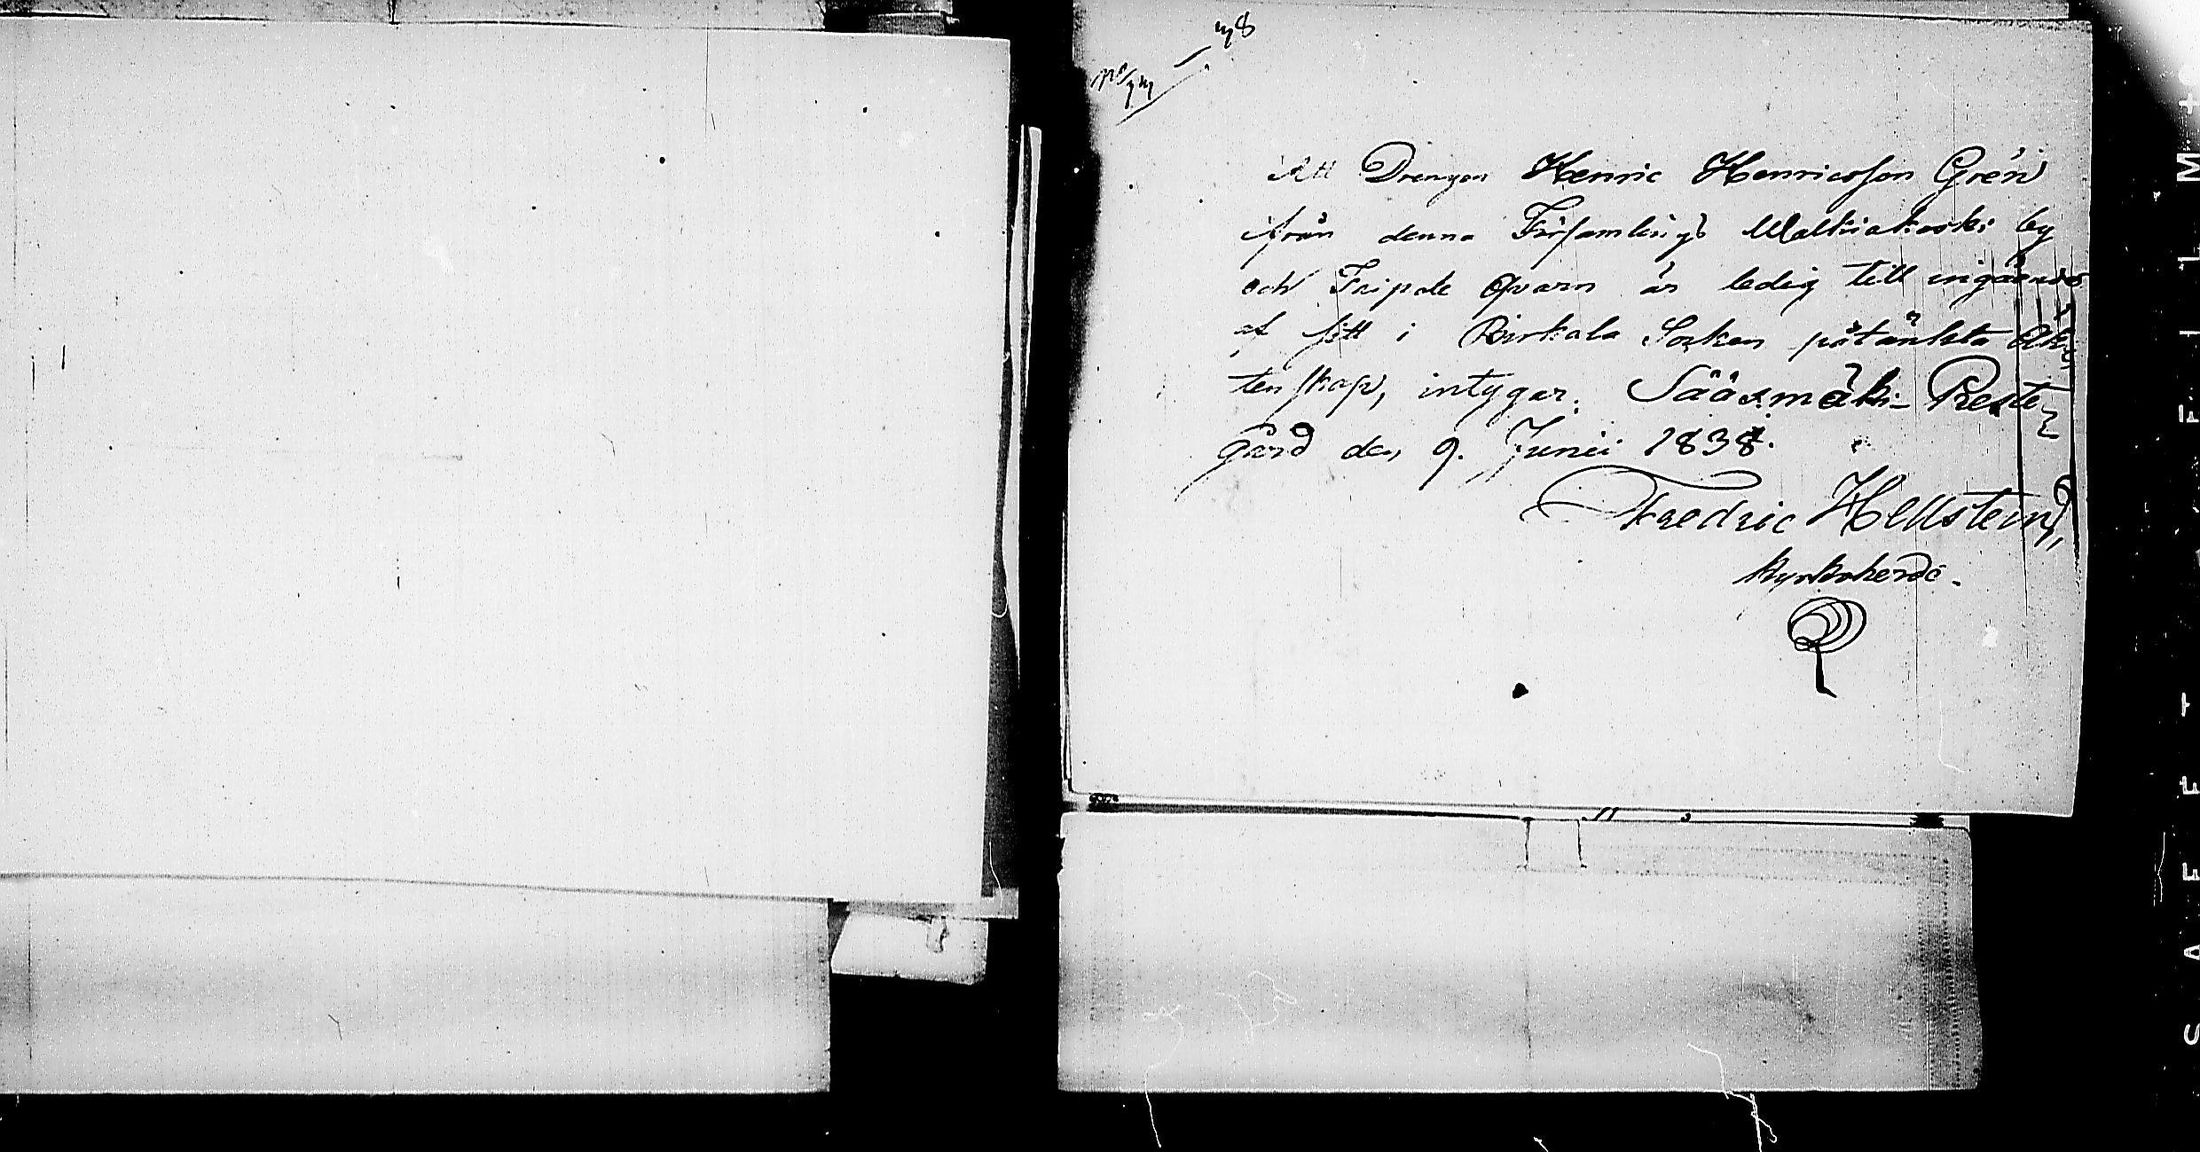 Att Drengen Henric Henricsson Grén
ifrån denna Församlings Walkiakoski by
och Fripale Qvarn är ledig till ingående
af sitt i Birkala Socken påtänkta Äk-
tenskap, intygar. Sääxmäki Preste-
gård den 9. Junii 1838.
Fredric Hellsten,
Kyrkoherde.
SAFETY FILM